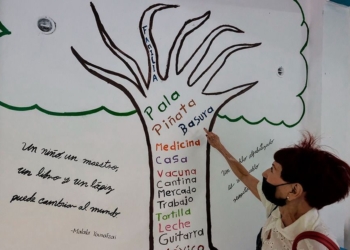 FAMILIA
Pala
Piñata
Basura
Medicina
Casa
Vacuna
Cantina
Mercado
Trabajo
Tortilla
Leche
Guitarra
Un niño un maestro,
un libro y un lápiz
puede cambiar al mundo